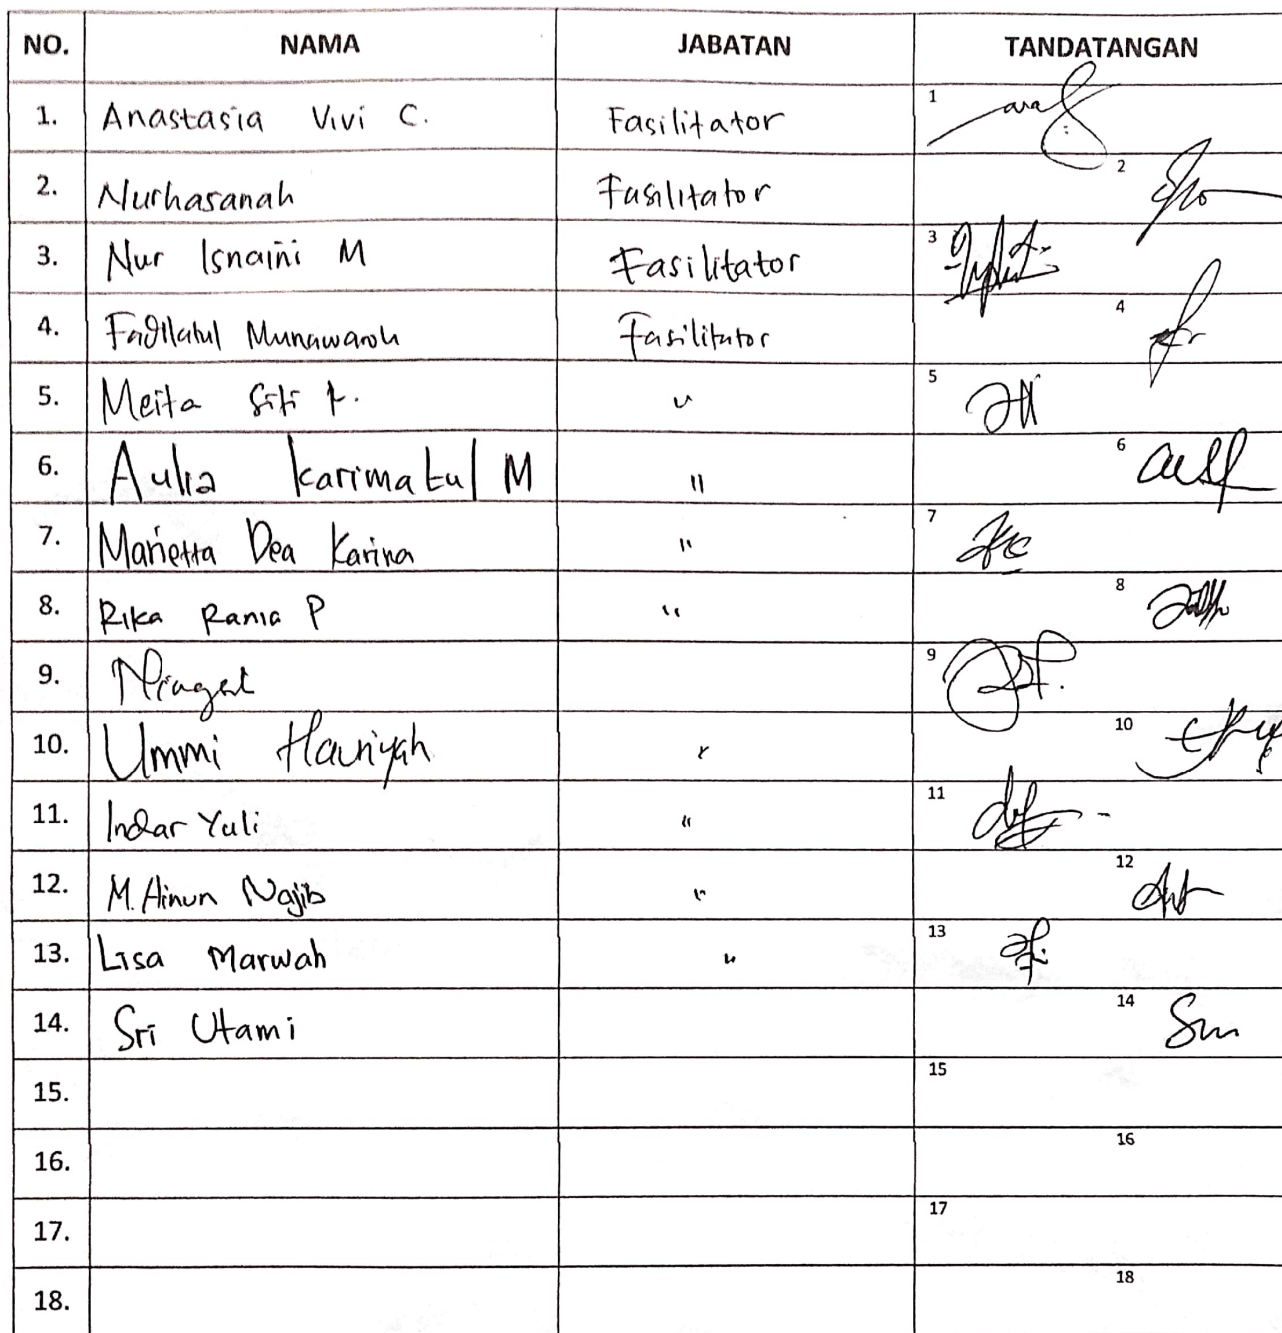 NO. NAMA JABATAN TANDATANGAN
1. Anastasia Vivi C. Fasilitator 1
2. Nurhasanah Fasilitator 2
3. Nur Isnaini M Fasilitator 3
4. Fadllatul Munawaroh Fasilitator 4
5. Meita Siti 〃 5
6. Aulia Karimatul M 〃 6
7. Marietta Dea Karina 〃 7
8. Rika Rania P 〃 8
9. 9
10. Ummi Hauriyah 〃 10
11. Indar Yuli 〃 11
12. M. Ainun Najib 〃 12
13. Lisa Marwah 〃 13
14. Sri Utami 14
15. 15
16. 16
17. 17
18. 18